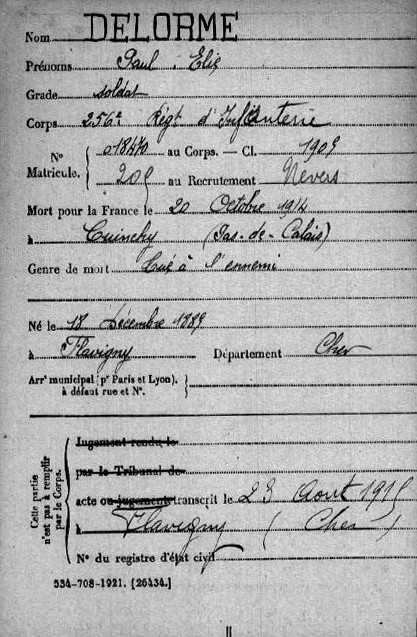 Nom DELORME
Prénoms Paul Elie
Grade soldat
Corps 256e Régt d'Infanterie
N° Matricule. 01840 au Corps. — Cl. 1909
209 au Recrutement Nevers
Mort pour la France le 20 Octobre 1914
à Cuinchy (Pas-de-Calais)
Genre de mort Tué à l'ennemi
Né le 18 Décembre 1889
à Flavigny Département Cher
Arrt municipal (pr Paris et Lyon),
à défaut rue et N°.
Cette partie
n'est pas à remplir
par le Corps.
Jugement rendu le
par le Tribunal de
acte ou jugement transcrit le 23 Aout 1915
à Flavigny (Cher)
N° du registre d'état civil
534-708-1921. [26434.]